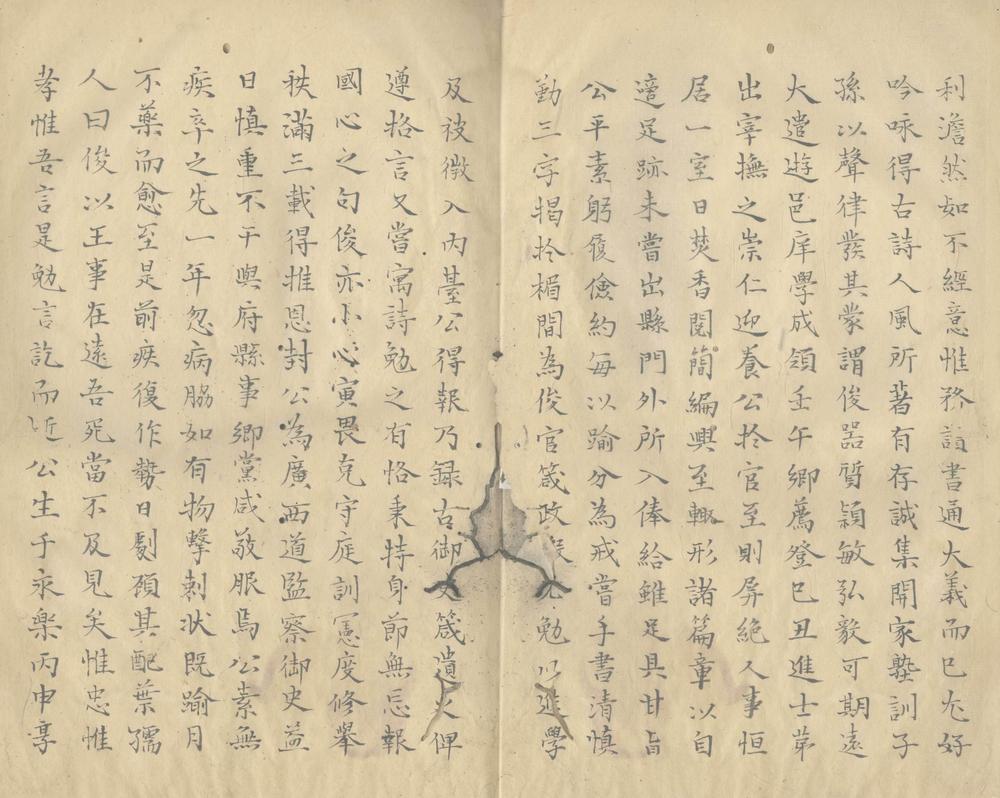 利澹然如不經意惟務讀書通大義而已尤好
吟咏得古詩人風所著有存誠集開家塾訓子
孫以聲律發其蒙謂俊器質穎敏弘毅可期遠
大遣遊邑庠學成領壬午鄉薦登己丑進士第
出宰撫之崇仁迎養公扵官至則屏絶人事恒
居一室日焚香閱簡編興至輙形諸篇章以自
適足跡未嘗出縣門外所入俸給雖足具甘旨
公平素躬履儉約每以踰分為戒嘗手書清慎
勤三字揭扵楣間為俊官箴政 勉以進學
及被徴入內䑓公得報乃録古御史箴遺火俾
遵格言又嘗寓詩勉之有恪秉特身節無忘報
國心之句俊亦小心寅畏克守庭訓憲度修舉
秩滿三載得推恩封公為廣西道監察御史益
日慎重不干與府縣事鄉黨咸敬服焉公素無
疾卒之先一年忽病脇如有物擊刺狀既踰月
不藥而愈至是前疾復作勢日劇顧其配葉孺
人曰俊以王事在遠吾死當不及見矣惟忠惟
孝惟吾言是勉言訖而近公生于永樂丙申享